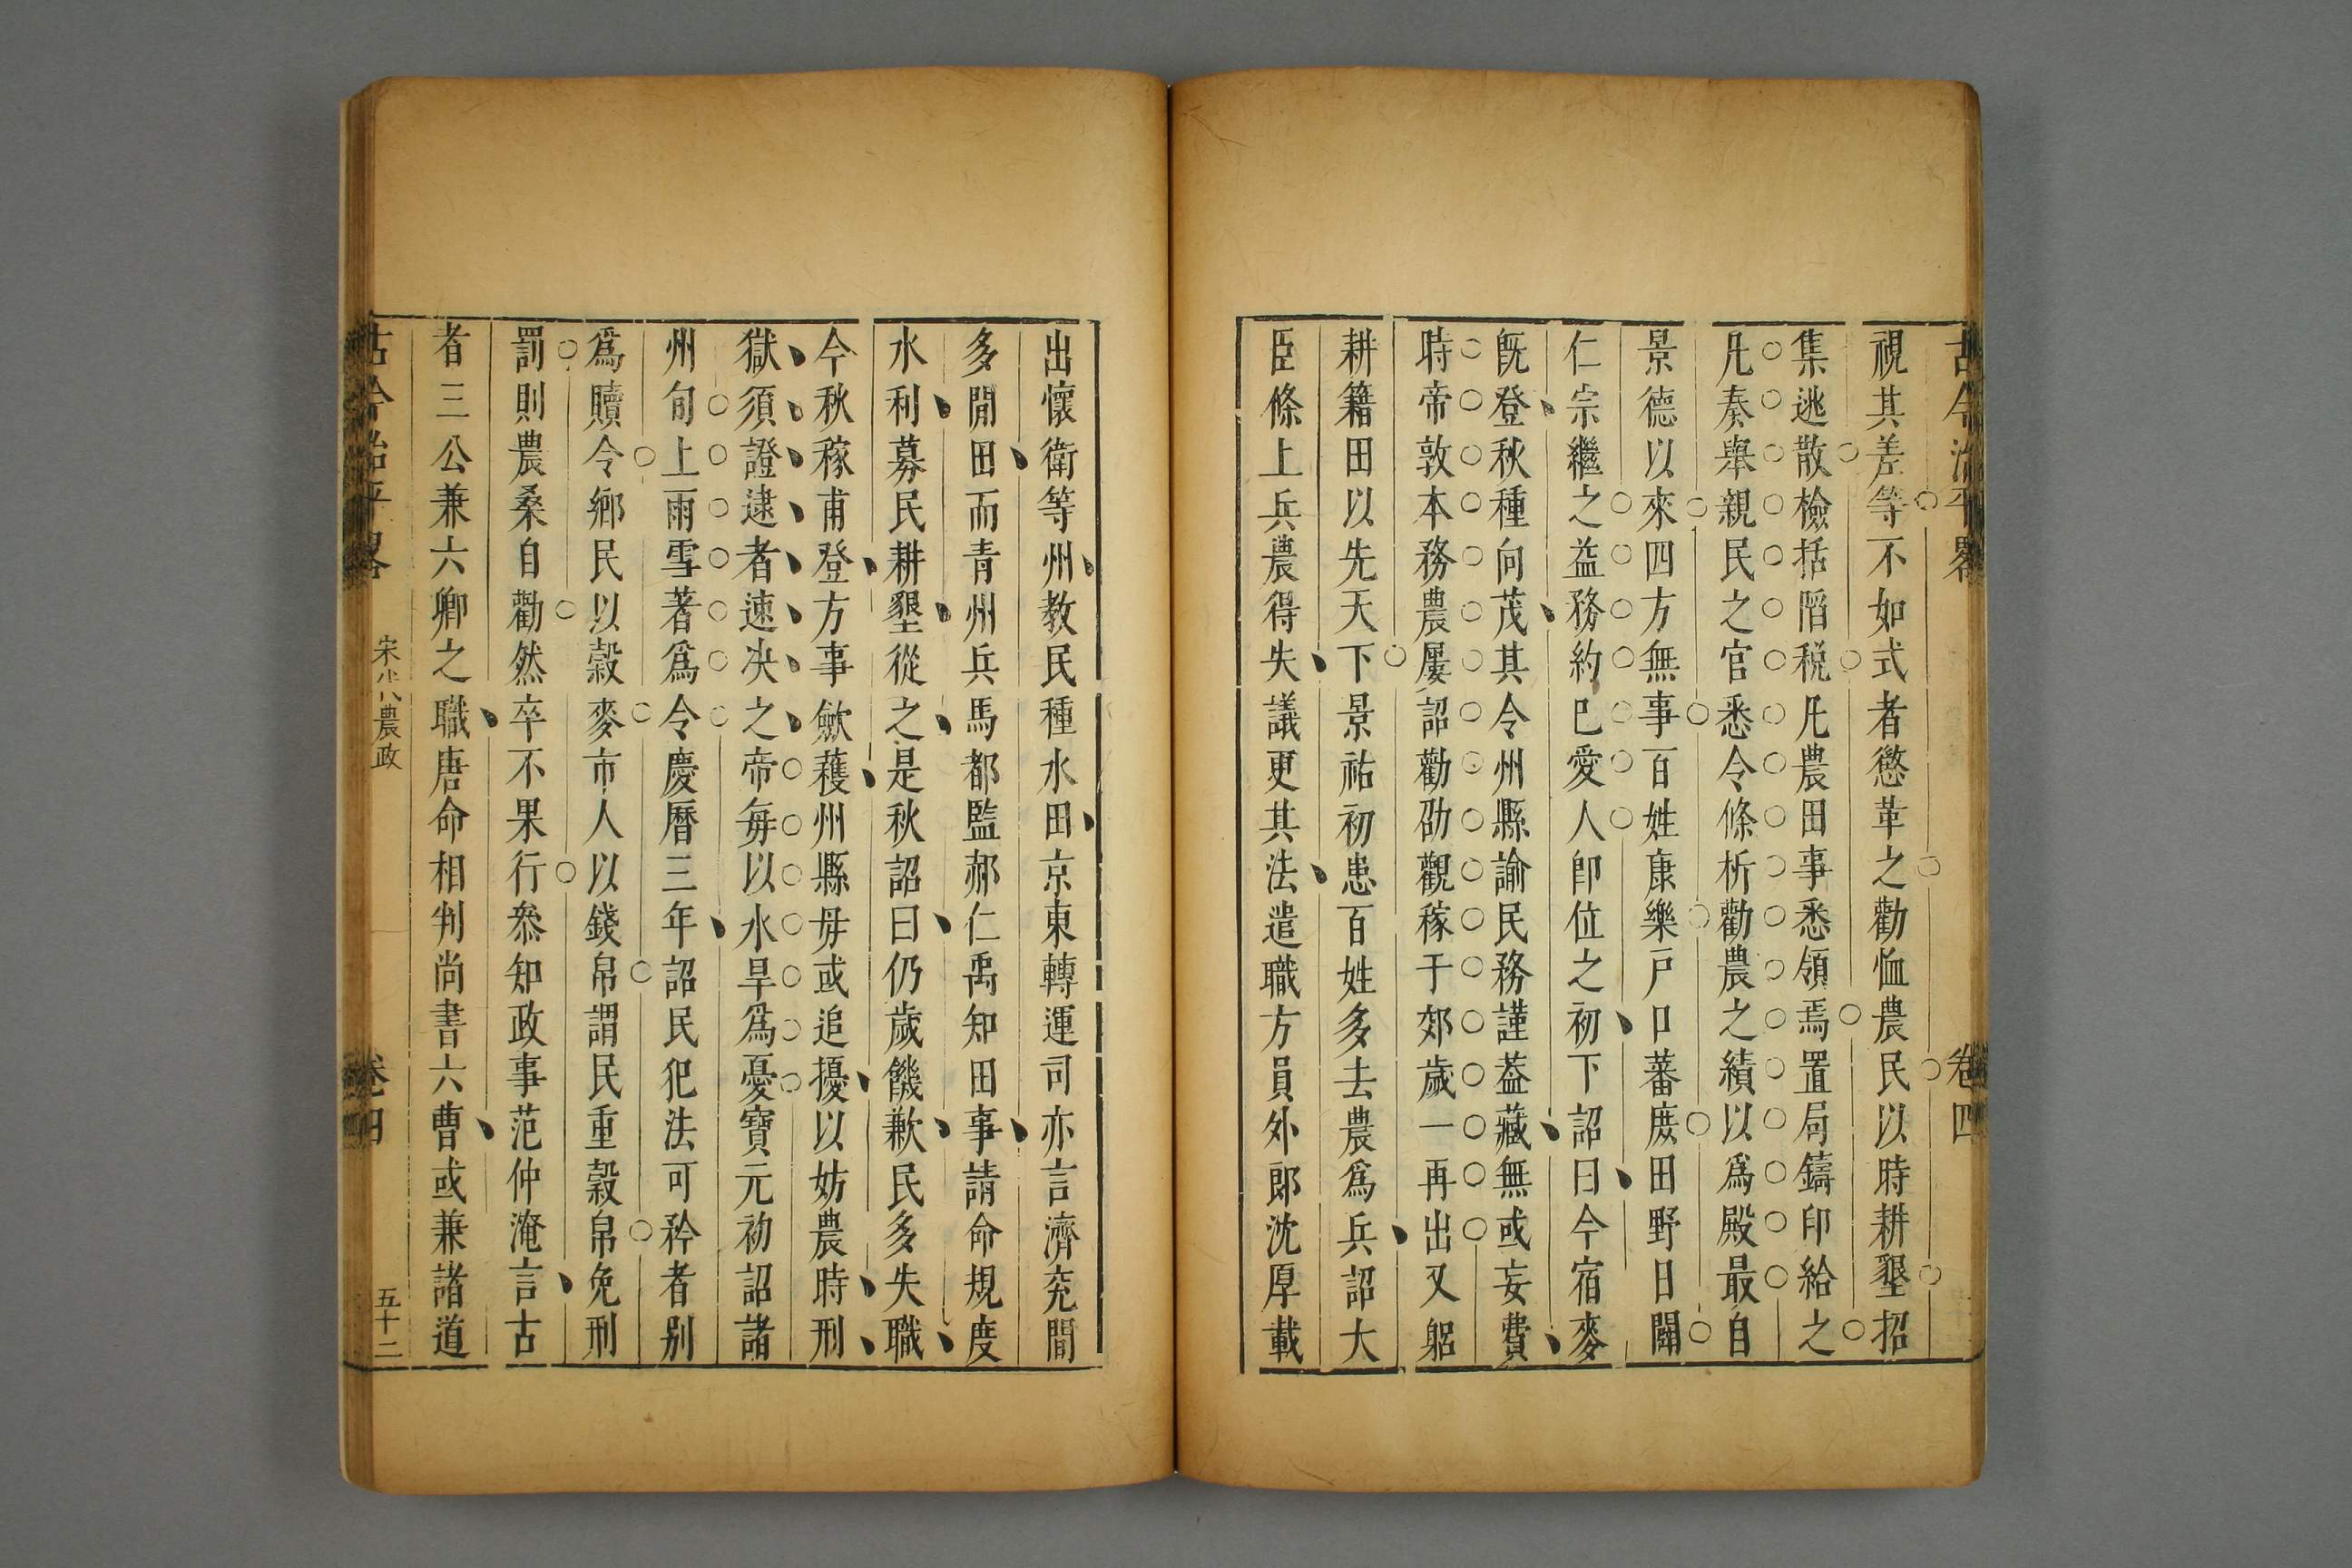 古今治平畧
卷四
視其差等不如式者懲革之勸恤農民以時耕墾招
集逃散檢括陷税凡農田事悉領焉置局鑄印給之
凡奏舉親民之官悉令條析勸農之績以爲殿最自
景德以來四方無事百姓康樂戸口蕃庻田野日闢
仁宗繼之益務約巳愛人卽位之初下詔曰今宿麥
旣登秋種向茂其令州縣諭民務謹葢藏無或妄費
時帝敦本務農屢詔勸劭觀稼于郊歲一再出又躬
耕籍田以先天下景祐初患百姓多去農爲兵詔大
臣條上兵農得失議更其法遣職方員外郎沈厚載
出懷衛等州教民種水田京東轉運司亦言濟兖間
多閒田而青州兵馬都監郝仁禹知田事請命規度
水利募民耕墾從之是秋詔曰仍歲饑歉民多失職
今秋稼甫登方事斂穫州縣毋或追擾以妨農時刑
獄須證逮者速决之帝每以水旱爲憂寶元初詔諸
州旬上雨雪著爲令慶曆三年詔民犯法可矜者别
爲贖令鄉民以穀麥市人以錢帛謂民重穀帛免刑
罰則農桑自勸然卒不果行叅知政事范仲淹言古
者三公兼六卿之職唐命相判尚書六曹或兼諸道
古今治平畧
宋代農政
卷四
五十二